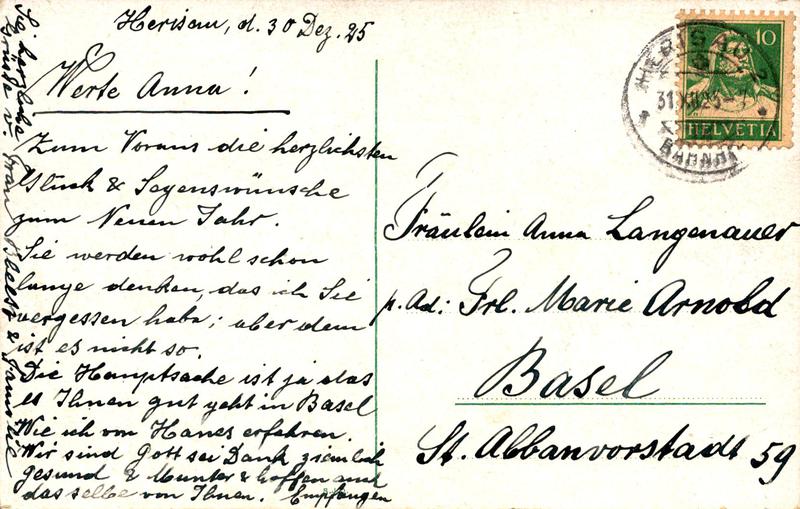 Herisau, d. 30 Dez. 25
Werte Anna!
Zum Voraus die herzlichsten
Glück & Segenswünsche
zum Neuen Jahr.
Sie werden wohl schon
lange denken, das ich Sie
vergessen habe; aber dem
ist es nicht so.
Die Hauptsache ist ja das
es Ihnen gut geht in Basel
Wie ich von Hanes erfahren.
Wir sind Gott sei Dank ziemlich
gesund & Munter & hoffen auch
dasselbe von Ihnen. Empfangen
Sie herzliche
Grüsse v. Frau & Familie
10
HELVETIA
HERISAU
31.XII.25-7
BAHNH
Fräulein Anna Langenauer
p. Ad: Frl. Marie Arnold
Basel
St. Albanvorstadt 59